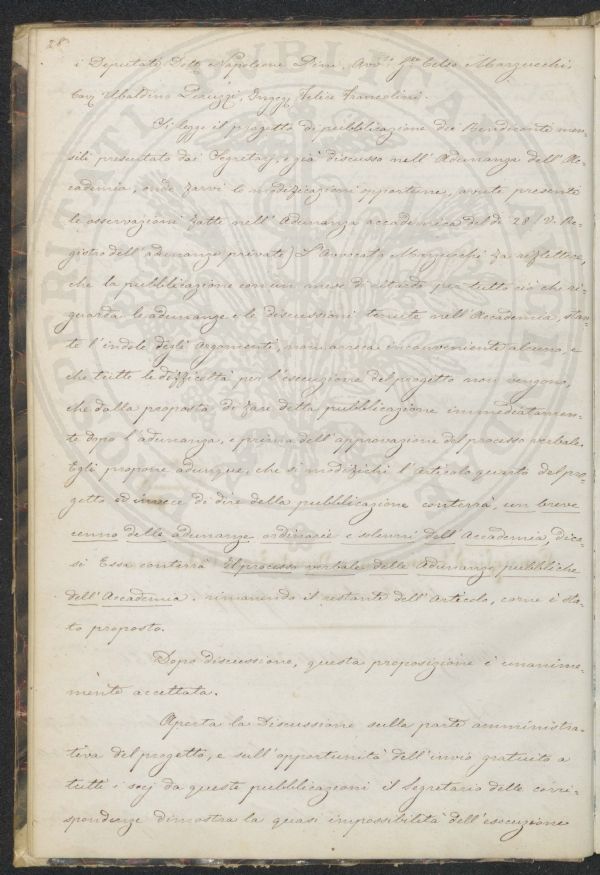 28
i Deputati Dott. Napoleone Pini, Avv.to Celso Marzucchi
Cav. Ubaldino Peruzzi, Ingeg. Felice Francolini.
Si legge il progetto di pubblicazione dei Rendiconti men-
sili presentato dai Segretarj, e già discusso nell' Adunanza dell' Ac-
cademia, onde farvi le modificazioni opportune, avute presenti
le osservazioni fatte nell' Adunanza accademica del dì 28 (V. Re-
gistro dell' adunanze private) L'Avvocato Marzucchi fa riflettere,
che la pubblicazione con un mese di ritardo per tutto ciò che ri-
guarda le adunanze e le discussioni tenute nell' Accademia, stan-
te l'indole degli argomenti, non arreca inconveniente alcuno, e
che tutte le difficoltà per l'esecuzione del progetto non vengono,
che dalla proposta di fare della pubblicazione immediatamen-
te dopo l'adunanza, e prima dell' approvazione del processo verbale.
Egli propone adunque, che si modifichi l'Articolo quarto del pro-
getto ed invece di dire della pubblicazione conterrà, un breve
cenno delle adunanze ordinarie e solenni dell' Accademia, dica-
si Essa conterrà il processo verbale delle Adunanze pubbliche
dell' Accademia, rimanendo il restante dell' Articolo, come è sta-
to proposto.
Dopo discussione, questa proposizione è unanime-
mente accettata.
Aperta la Discussione sulla parte amministra-
tiva del progetto, e sull' opportunità dell' invio gratuito a
tutti i socj da queste pubblicazioni il Segretario delle corri-
spondenze dimostra la quasi impossibilità dell' esecuzione